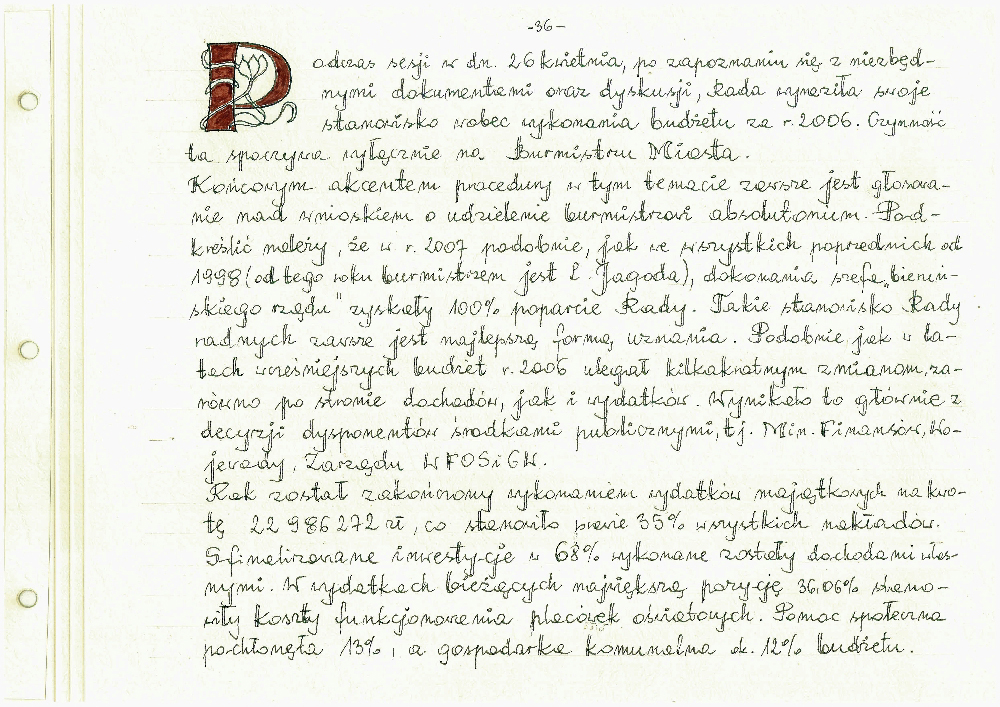 -36-
Podczas sesji w dn. 26 kwietnia, po zapoznaniu się z niezbęd-
nymi dokumentami oraz dyskusji, Rada wyraziła swoje
stanowisko wobec wykonania budżetu za r. 2006. Czynność
ta spoczywa wyłącznie na Burmistrzu Miasta.
Końcowym akcentem procedury w tym temacie zawsze jest głosowa-
nie nad wnioskiem o udzielenie burmistrzowi absolutorium. Pod-
kreślić należy, że w r. 2007 podobnie, jak we wszystkich poprzednich od
1998 (od tego roku burmistrzem jest L. Jagoda), dokonania szefa „bieruń-
skiego rządu" zyskały 100% poparcie Rady. Takie stanowisko Rady
radnych zawsze jest najlepszą formą uznania. Podobnie jak w la-
tach wcześniejszych budżet r. 2006 ulegał kilkakrotnym zmianom, za-
równo po stronie dochodów, jak i wydatków. Wynikało to głównie z
decyzji dysponentów środkami publicznymi, tj. Min. Finansów, Wo-
jewody, Zarządu WFOŚiGW.
Rok został zakończony wykonaniem wydatków majątkowych na kwo-
tę 22 986 272 zł, co stanowiło prawie 35% wszystkich nakładów.
Sfinalizowane inwestycje w 68% wykonane zostały dochodami włas-
nymi. W wydatkach bieżących największą pozycję 36,06% stano-
wiły koszty funkcjonowania placówek oświatowych. Pomoc społeczna
pochłonęła 13%, a gospodarka komunalna ok. 12% budżetu.